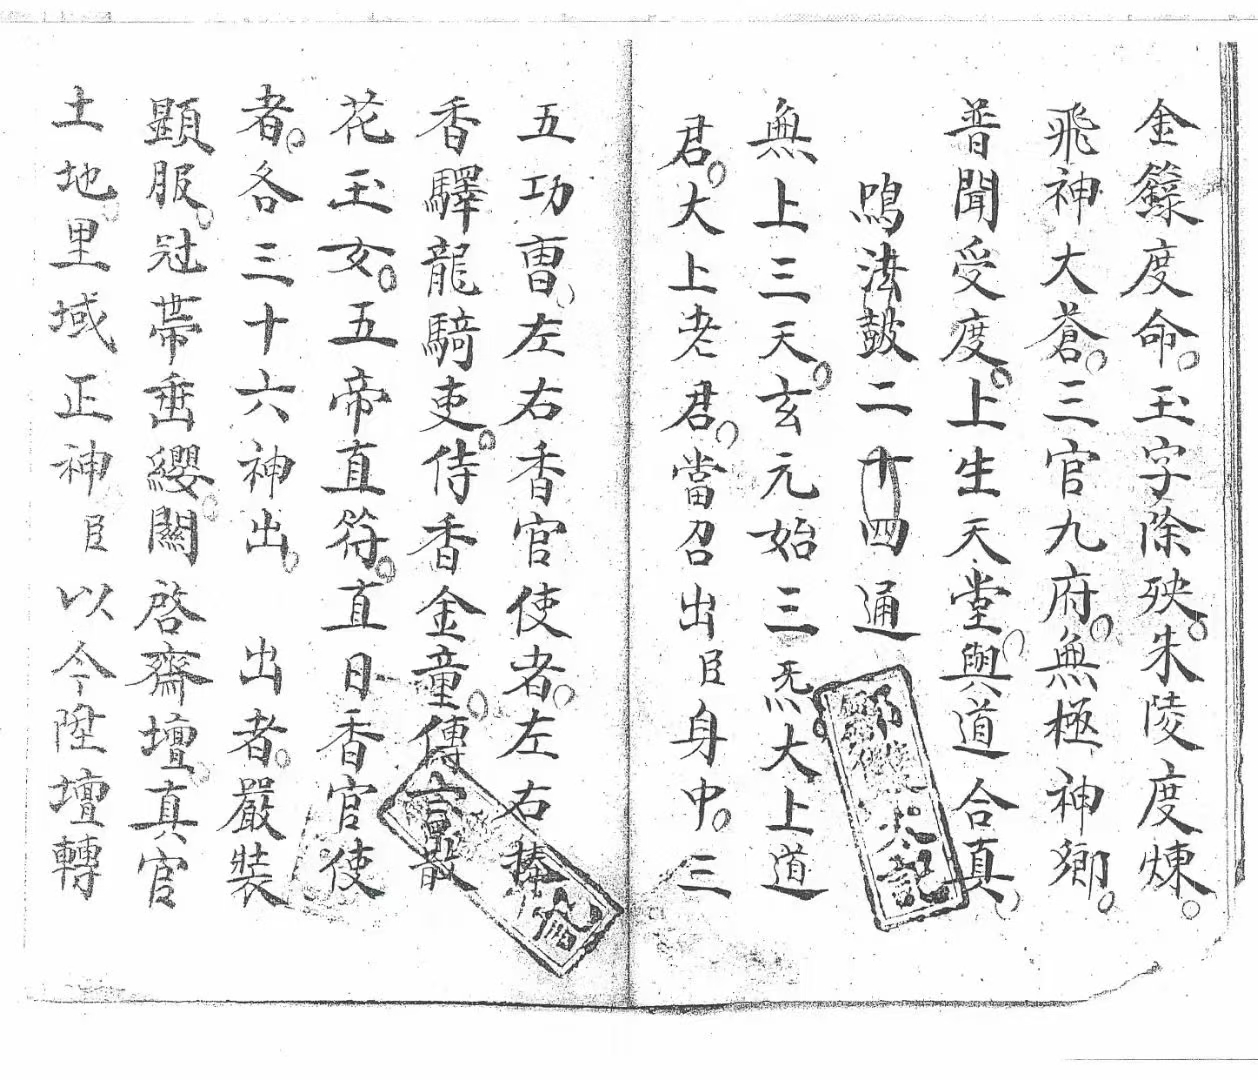 金籙度命玉字除殃朱陵度煉
飛神大蒼三官九府無極神鄉
普聞受度上生天堂與道合真
鳴法鼓二十四通
無上三天玄元始三炁大上道
君大上老君當召出臣身中三
五功曺左右香官使者左右捧
香驛龍騎吏侍香金童傳言散
花玉女五帝直符直日香官使
者各三十六神出 出者嚴裝
顕服冠帶垂纓關啓齋壇真官
土地里域正神臣 以今陞壇轉